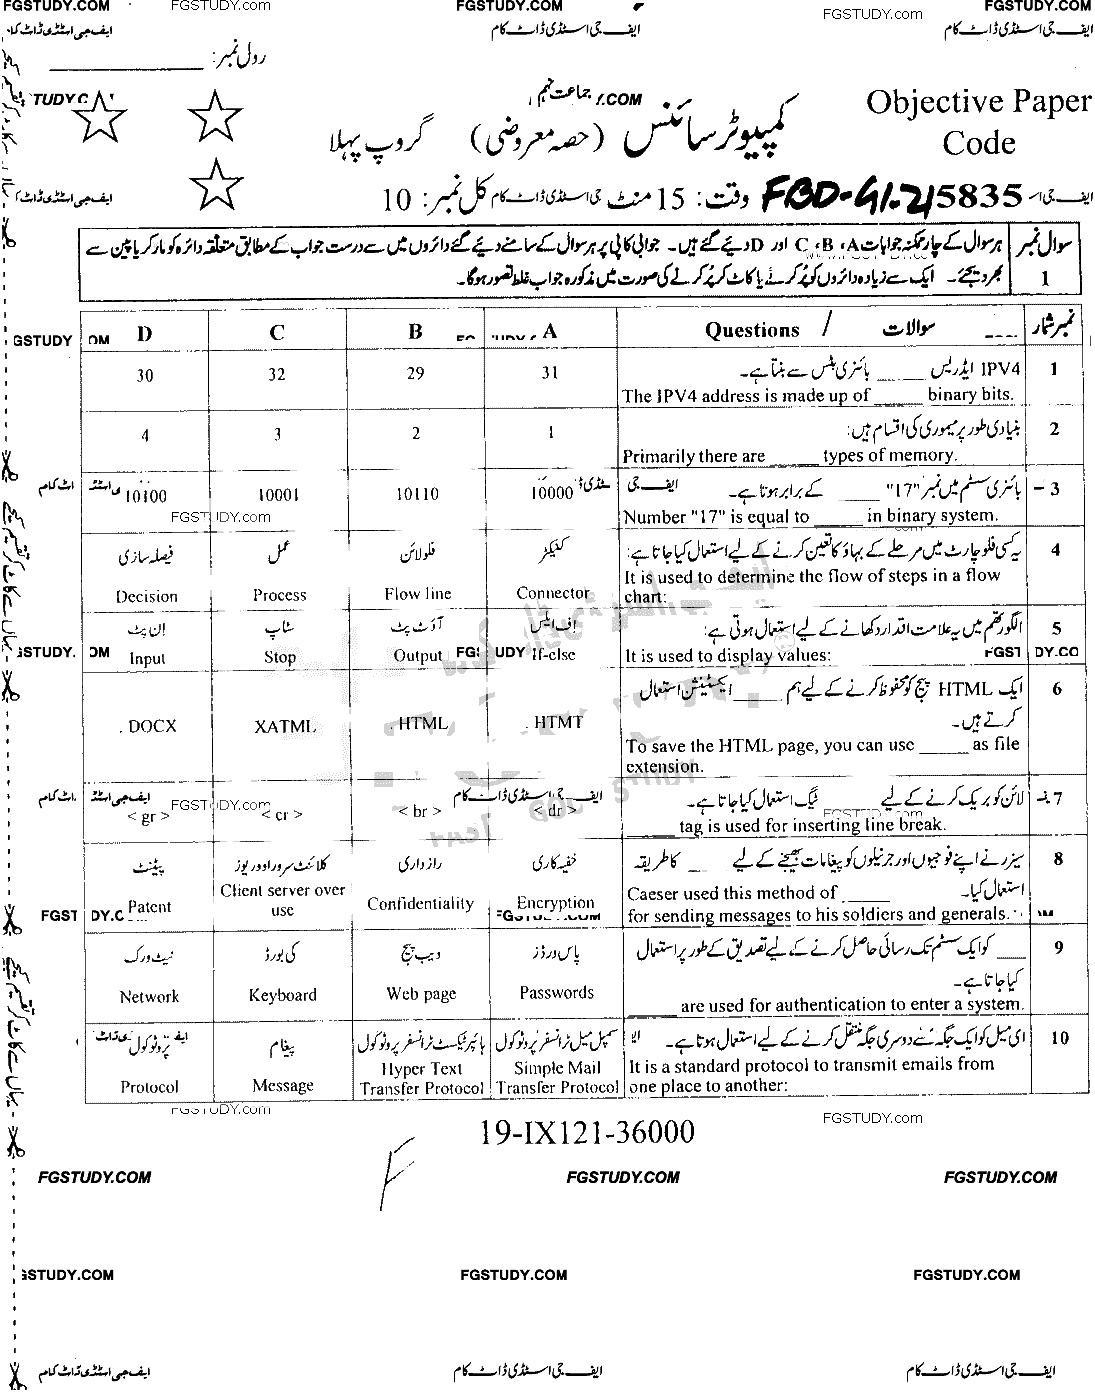 FGSTUDY.COM FGSTUDY.com FGSTUDY.COM FGSTUDY.com FGSTUDY.COM
ایف جی اسٹڈی ڈاٹ کام ایف جی اسٹڈی ڈاٹ کام ایف جی اسٹڈی ڈاٹ کام
رول نمبر: ____________
جماعت نہم
Objective Paper
Code
کمپیوٹر سائنس (حصہ معروضی) گروپ پہلا
5835 FBD-G1-21 وقت: 15 منٹ کل نمبر: 10
سوال نمبر 1
ہر سوال کے چار ممکنہ جوابات A، B، C اور D دیئے گئے ہیں۔ جوابی کاپی پر ہر سوال کے سامنے دیئے گئے دائروں میں سے درست جواب کے مطابق متعلقہ دائرہ کو مارکر یا پین سے
بھر دیجئے۔ ایک سے زیادہ دائروں کو پُر کرنے یا کاٹ کر پُر کرنے کی صورت میں مذکورہ جواب غلط تصور ہوگا۔
نمبر شمار سوالات / Questions A B C D
1 IPV4 ایڈریس ____ بائنری بٹس سے بنتا ہے۔
The IPV4 address is made up of _____ binary bits.
31 29 32 30
2 بنیادی طور پر میموری کی اقسام ہیں:
Primarily there are _____ types of memory.
1 2 3 4
3 بائنری سسٹم میں نمبر "17" ____ کے برابر ہوتا ہے۔
Number "17" is equal to _____ in binary system.
10000 10110 10001 10100
4 یہ کسی فلو چارٹ میں مرحلے کے بہاؤ کا تعین کرنے کے لیے استعمال کیا جاتا ہے:
It is used to determine the flow of steps in a flow
chart:
کنیکٹر فلو لائن عمل فیصلہ سازی
Connector Flow line Process Decision
5 الگورتھم میں یہ علامت اقدار دکھانے کے لیے استعمال ہوتی ہے:
It is used to display values:
اِف ایلس آؤٹ پٹ سٹاپ اِن پٹ
If-else Output Stop Input
6 ایک HTML پیج کو محفوظ کرنے کے لیے ہم ____ ایکسٹینشن استعمال
کرتے ہیں۔
To save the HTML page, you can use _____ as file
extension.
. HTMT . HTML XATML . DOCX
7 لائن کو بریک کرنے کے لیے ____ ٹیگ استعمال کیا جاتا ہے۔
_____ tag is used for inserting line break.
< dr > < br > < cr > < gr >
8 سیزر نے اپنے فوجیوں اور جرنیلوں کو پیغامات بھیجنے کے لیے ____ کا طریقہ
استعمال کیا۔
Caeser used this method of _____
for sending messages to his soldiers and generals.
خفیہ کاری رازداری کلائنٹ سرور اوور یوز پیٹنٹ
Encryption Confidentiality Client server over use Patent
9 ____ کو ایک سسٹم تک رسائی حاصل کرنے کے لیے تصدیق کے طور پر استعمال
کیا جاتا ہے۔
_____ are used for authentication to enter a system.
پاس ورڈز ویب پیج کی بورڈ نیٹ ورک
Passwords Web page Keyboard Network
10 ای میل کو ایک جگہ سے دوسری جگہ منتقل کرنے کے لیے استعمال ہوتا ہے۔
It is a standard protocol to transmit emails from
one place to another:
سمپل میل ٹرانسفر پروٹوکول ہائپر ٹیکسٹ ٹرانسفر پروٹوکول پیغام پروٹوکول
Simple Mail Transfer Protocol Hyper Text Transfer Protocol Message Protocol
19-IX121-36000
FGSTUDY.com FGSTUDY.com
FGSTUDY.COM FGSTUDY.COM FGSTUDY.COM
GSTUDY.COM FGSTUDY.COM FGSTUDY.COM
ایف جی اسٹڈی ڈاٹ کام ایف جی اسٹڈی ڈاٹ کام ایف جی اسٹڈی ڈاٹ کام